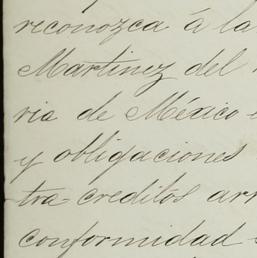 reconozca á la
Martinez del
ria de México
y obligaciones
tra creditos arr
conformidad